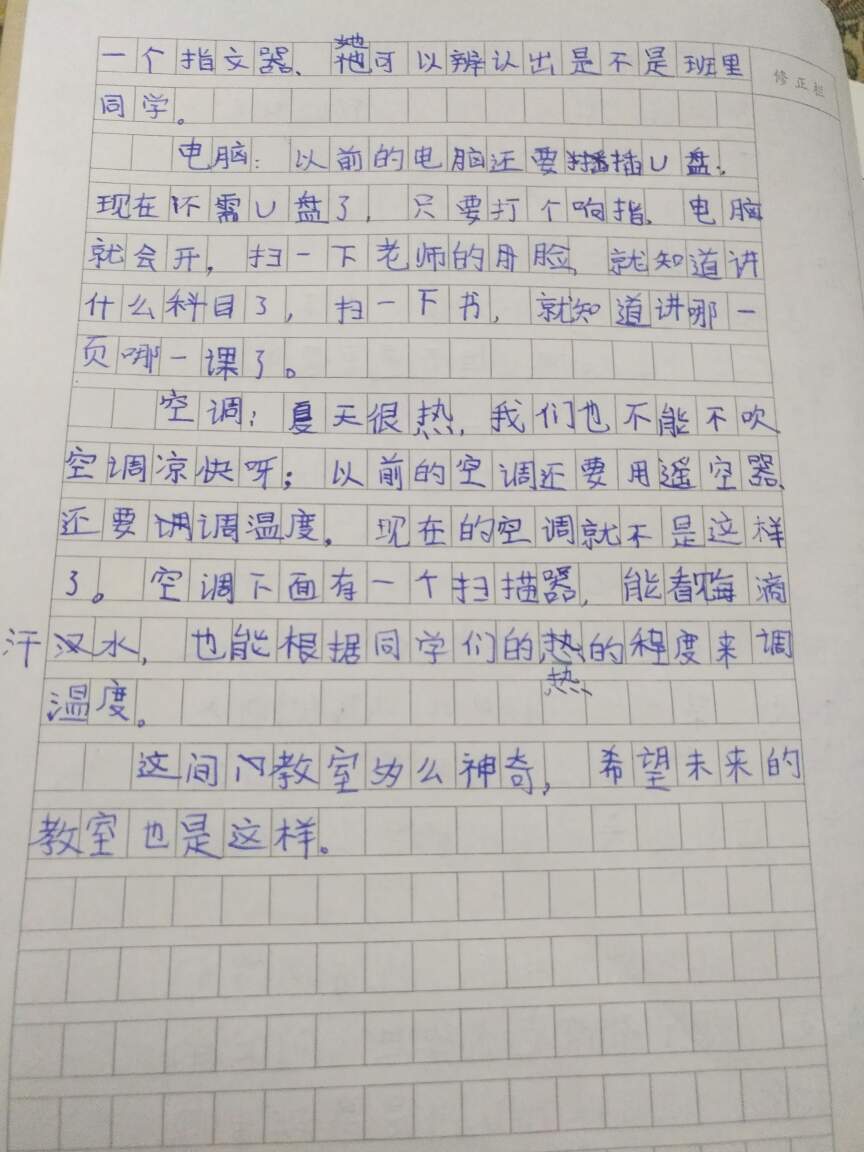 一个指文器、她可以辨认出是不是班里
修正栏
同学。
电脑：以前的电脑还要插U盘，
现在不需U盘了，只要打个响指，电脑
就会开，扫一下老师的脸，就知道讲
什么科目了，扫一下书，就知道讲哪一
页哪一课了。
空调：夏天很热，我们也不能不吹
空调凉快呀；以前的空调还要用遥空器、
还要调温度，现在的空调就不是这样
了。空调下面有一个扫描器，能看每滴
汗水，也能根据同学们的热的程度来调
温度。
这间教室多么神奇，希望未来的
教室也是这样。